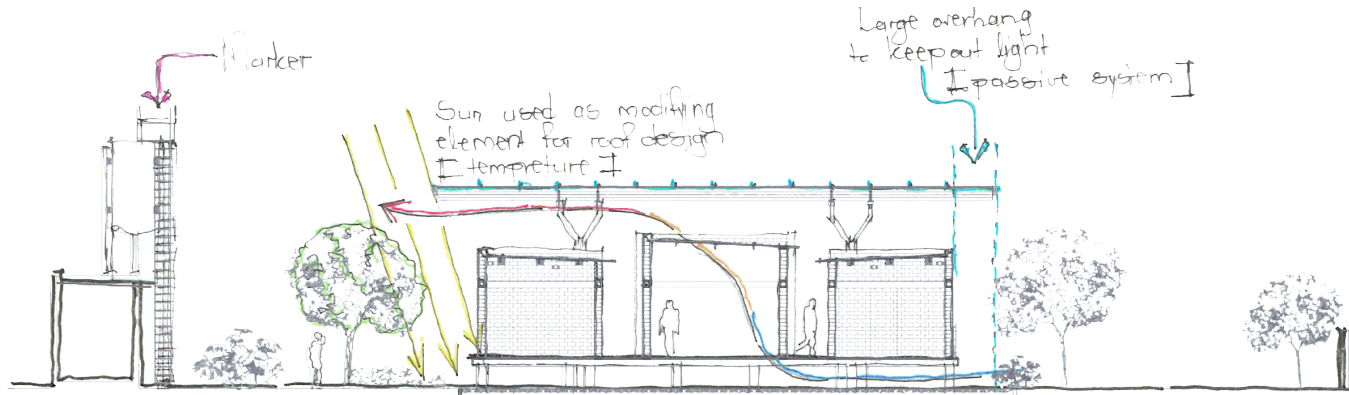 Marker
Sun used as modifying
element for roof design
[tempreture]
Large overhang
to keep out light
[passive system]